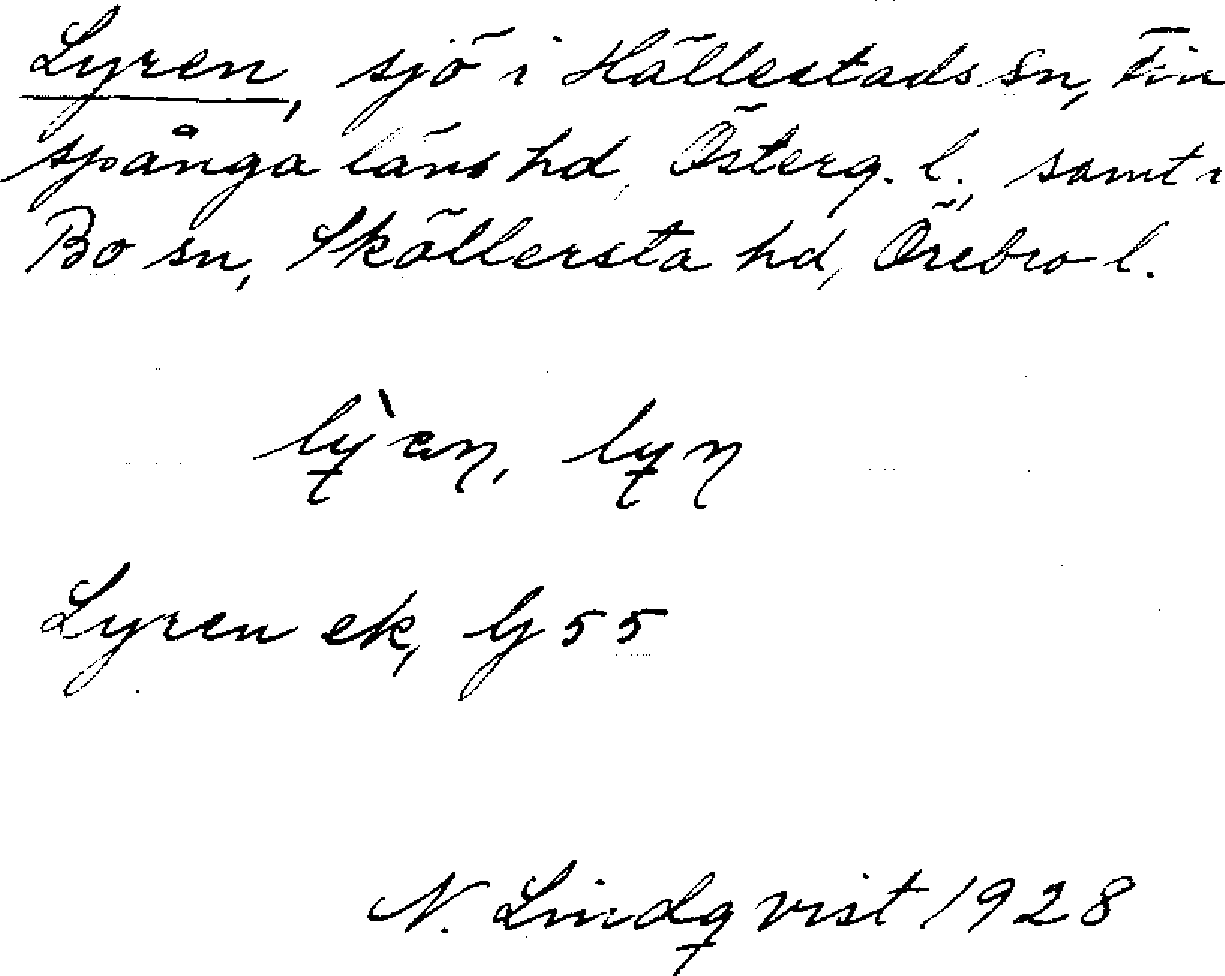 Lyren, sjö i Hällestads sn, Fin
spånga läns hd, Österg. l., samt i
Bo sn, Sköllersta hd, Örebro l.
Lyren ek, G 55
N. Lindqvist 1928